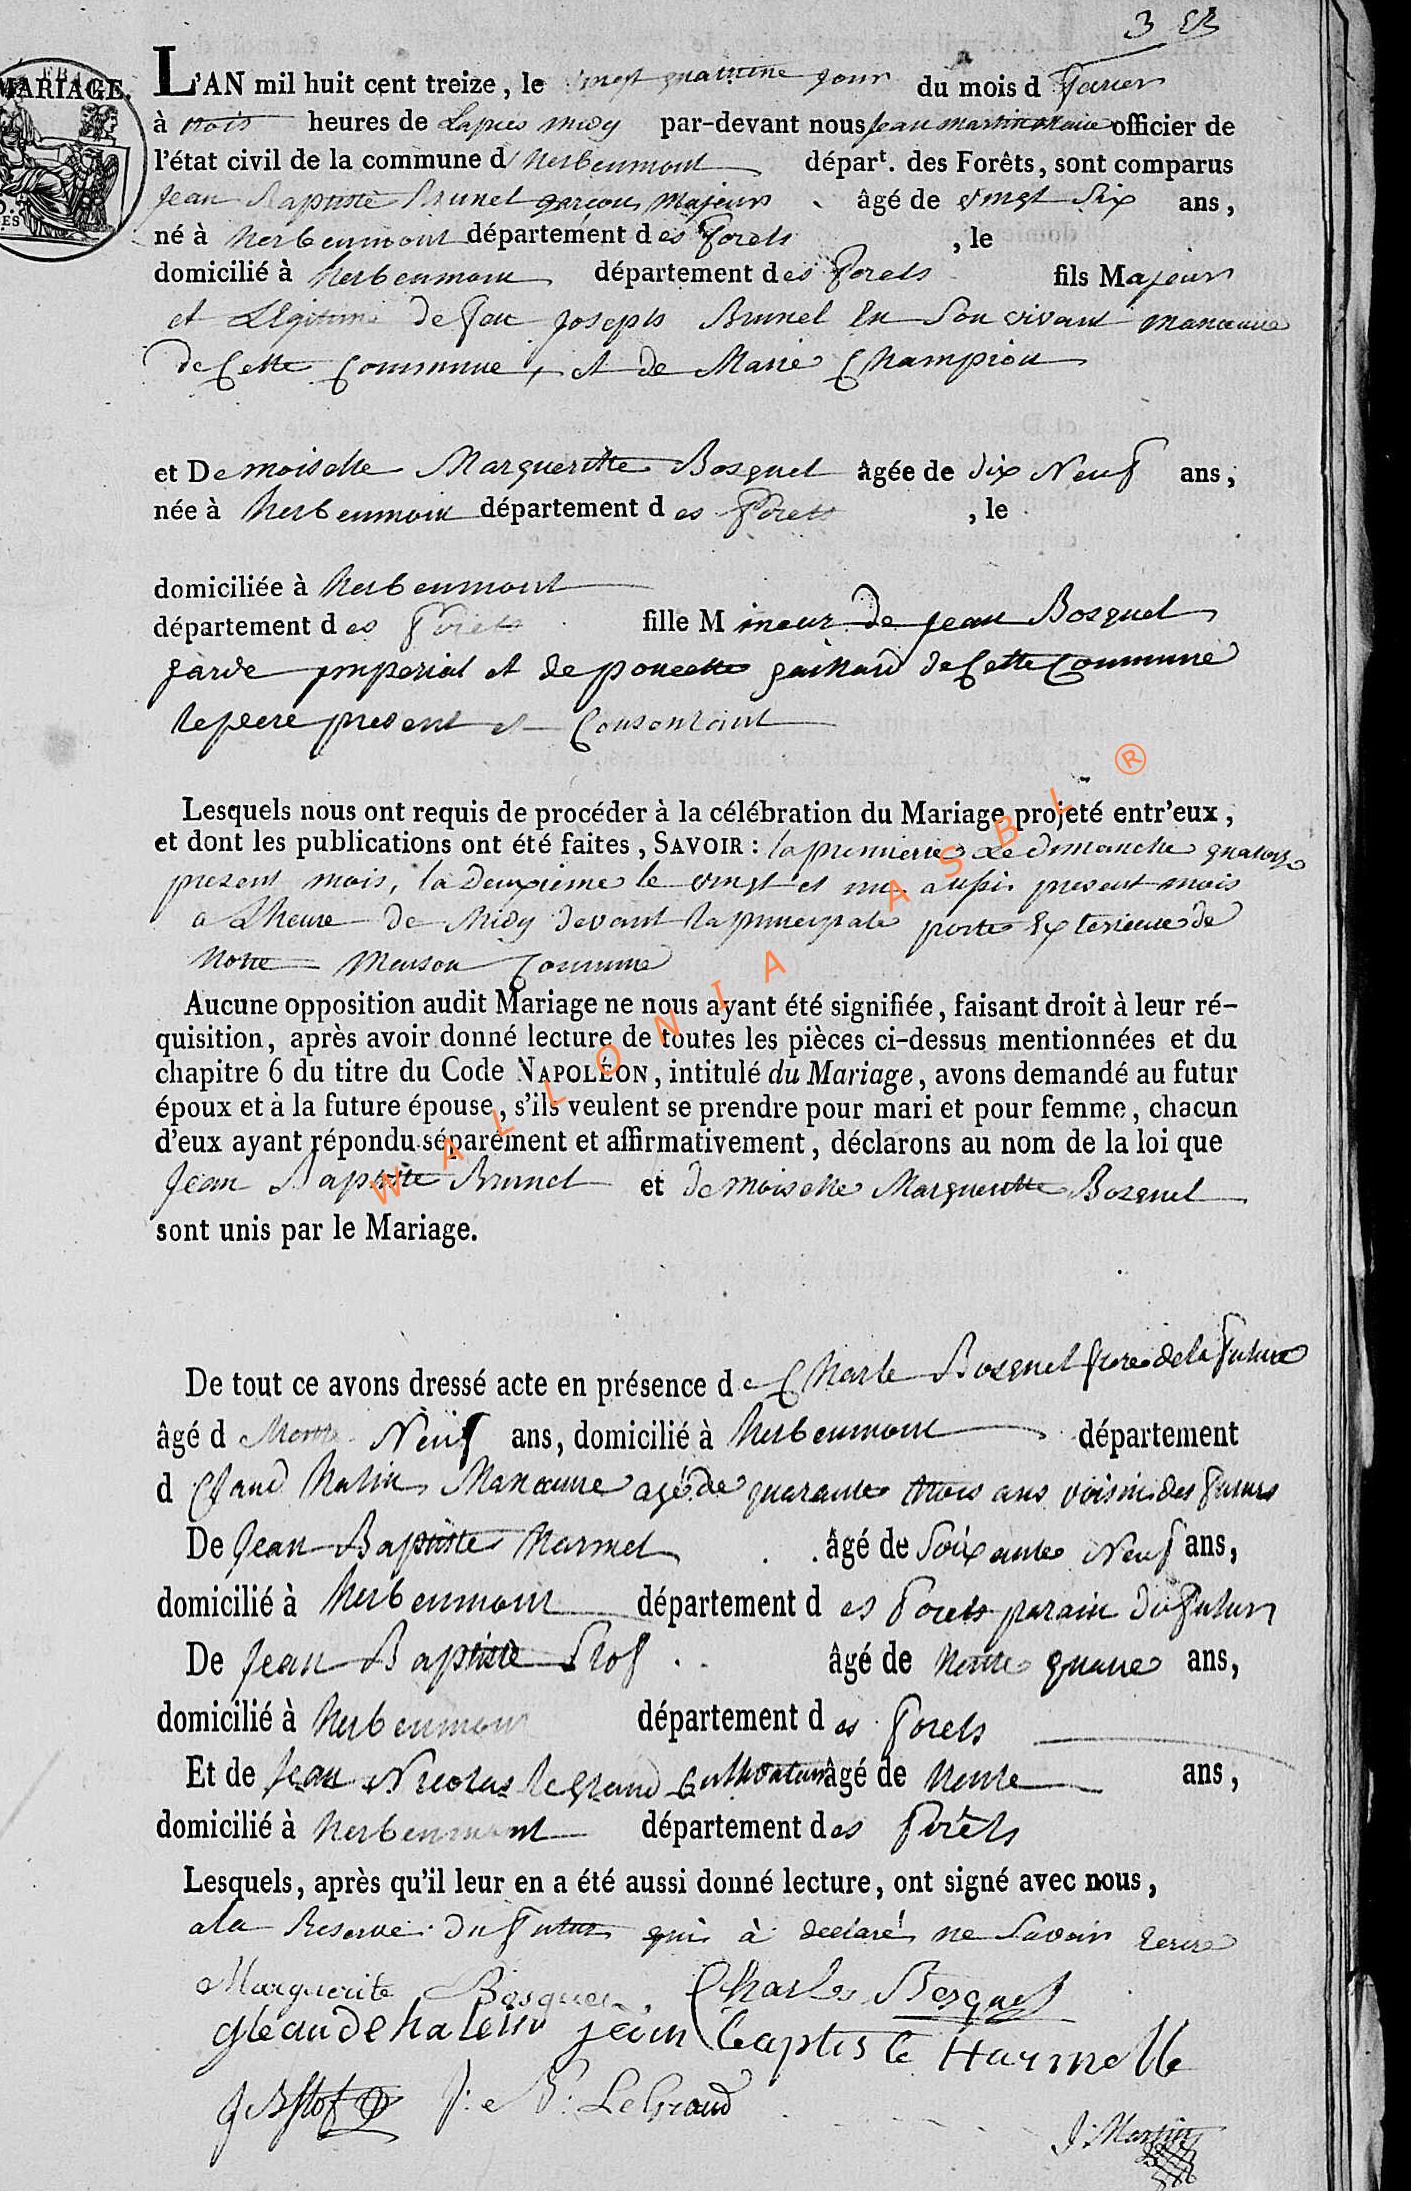 3
MARIAGE.
L'AN mil huit cent treize, le vingt quatrieme jour du mois d
à trois heures de Lapres midy par-devant nous Jean Martin Maire officier de
l'état civil de la commune d'herbeumont départ. des Forêts, sont comparus
Jean Baptiste Brunel garcon Majeur âgé de vingt Six ans,
né à herbeumont département des Forets , le
domicilié à herbeumont département des Forets fils Majeur
et Legitime de feu Joseph Brunel En Son vivant manoeuvre
de Cette Commune, et de Marie Champion
et Demoiselle Margueritte Bosquet âgée de dix Neuf ans,
née à herbeumont département des Forets , le
domiciliée à herbeumont
département des Forets fille Mineur de jean Bosquet
garde imperial et de poncette gaillard de Cette Commune
le pere present et Consentant
Lesquels nous ont requis de procéder à la célébration du Mariage projeté entr'eux,
et dont les publications ont été faites, SAVOIR : la premiere Le dimanche quatorze
present mois, la Deuxieme le vingt et un aussi present mois
a Lheure de Midy devant la principale porte Exterieure de
Notre Maison Commune
Aucune opposition audit Mariage ne nous ayant été signifiée, faisant droit à leur ré-
quisition, après avoir donné lecture de toutes les pièces ci-dessus mentionnées et du
chapitre 6 du titre du Code NAPOLÉON, intitulé du Mariage, avons demandé au futur
époux et à la future épouse, s'ils veulent se prendre pour mari et pour femme, chacun
d'eux ayant répondu séparément et affirmativement, déclarons au nom de la loi que
Jean Baptiste Brunel et demoiselle Margueritte Bosquet
sont unis par le Mariage.
De tout ce avons dressé acte en présence de Charle Bosquet frere de la future
âgé d Neuf ans, domicilié à herbeumont département
d Claud halin Manoeuvre agé de quarante trois ans voisin des futurs
De Jean Baptiste harmel âgé de Soixante Neuf ans,
domicilié à herbeumont département des Forets parain du futur
De Jean Baptiste Slof âgé de trente quatre ans,
domicilié à herbeumont département des Forets
Et de Jean Nicolas le grand Cultivateur âgé de trente ans,
domicilié à herbeumont département des Forêts
Lesquels, après qu'il leur en a été aussi donné lecture, ont signé avec nous,
a la Reserve du futur qui à declaré ne Savoir Ecrire
Marguerite Bosquet Charles Bosquet
gleaude halein jean baptiste Harmelle
JBSlof J: N: LeGrand
J: Martin
WALLONIA ASBL ®